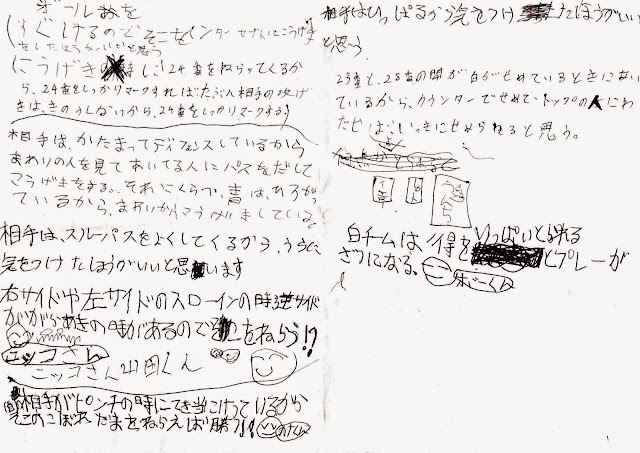 ボールを
(すぐけるのでそこをインターせプトしてこうげき
をしたほうがいいかと思う
こうげきの時に24番をねらってくるか
ら、24番をしっかりマークすればたぶん相手の攻げ
きは、きのうしないから、24番をしっかりマークする)
相手は、かたまってディフェンスしているから
まわりの人を見てあいてる人にパスをだして
こうげきをする。それにくらべ、青は、ひろがっ
ているから、
相手は、スルーパスをよくしてくるから、うらに
気をつけたほうがいいと思います
右サイドや左サイドのスローインの時逆サイド
ががらあきの時があるのでそこをねらう!?
ニッコさん
ニッコさん山田くん
相手がピンチの時にてき当にけっているから
そこのこぼれだまをねらえば勝つ!!
相手はひっぱるから気をつけたほうがいい
と思う。
23番と、28番の間が白がせめているときにない
ているから、カウンターでせめてトップの人にわ
たせば、いっきにせめられると思う。
白チームは得をいっぱいとられるとプレーが
ざつになる。